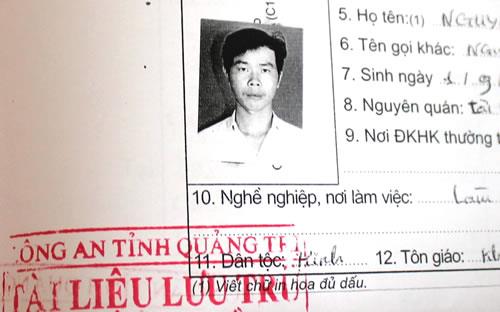 (C1
5. Họ tên:(1) NGUY
6. Tên gọi khác: NGU
7. Sinh ngày
8. Nguyên quán:
9. Nơi ĐKHK thường t
10. Nghề nghiệp, nơi làm việc: Làm
11. Dân tộc: Kinh 12. Tôn giáo: Kh
(1) Viết chữ in hoa đủ dấu.
ÔNG AN TỈNH QUẢNG TR
TÀI LIỆU LƯU TRỮ